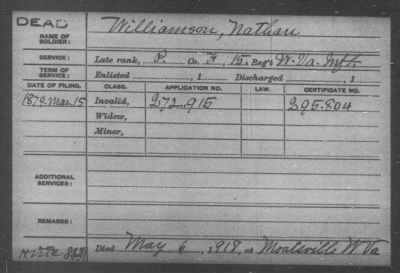 DEAD
NAME OF SOLDIER: Williamson, Nathan
SERVICE: Late rank, P. Co. F, 15, Reg't W. Va. Inft.
TERM OF SERVICE: Enlisted , 1 Discharged , 1
DATE OF FILING. CLASS. APPLICATION NO. LAW. CERTIFICATE NO.
1879. Mar. 15 Invalid, 272.915 295.504
Widow,
Minor,
ADDITIONAL SERVICES:
REMARKS:
Died May 6, 1918, at Moatsville W Va